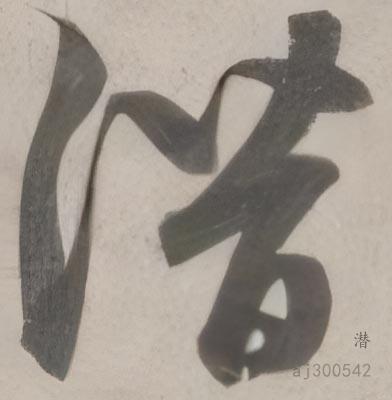 潜
潜
aj300542